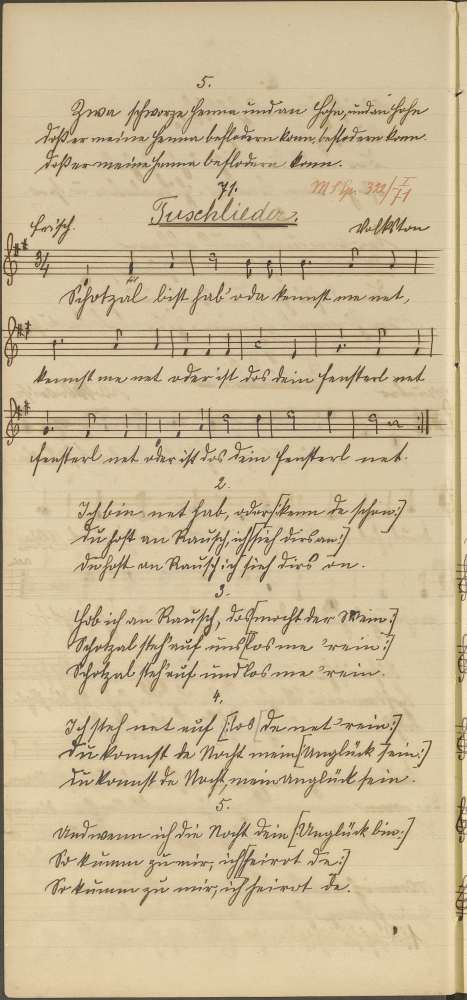 5.
Zwa schworze Henna und an Hohn, und an Hohn
Doß er meine Henna beflodern konn, beflodern konn.
Doß er meine Henna beflodern konn.
71.
Tuschlieder.
Frisch.
Volkston
Schotzal bist hab' oda kennst me net,
kennst me net oder ist dos dein Fensterl net
Fensterl net oder ist dos dein Fensterl net.
2.
Ich bin net hab, oder [:kenn de schon:]
Du host an Rausch, ich [:sieh dirs an:]
Du host an Rausch ich sieh dirs on.
3.
Hob ich an Rausch, dos [:mocht der Wein:]
Schotzal steh auf und [:los me 'rein:]
Schotzal steh auf und los me 'rein.
4.
Ich steh net auf [:los de net 'rein:]
Du konnst de Nocht mein [:Unglück sein:]
Du konnst de Nocht, mein Unglück sein.
5.
Und wenn ich die Nocht dein [:Unglück bin:]
So kumm zu mir, ich [:heirot de:]
So kumm zu mir, ich heirot de.